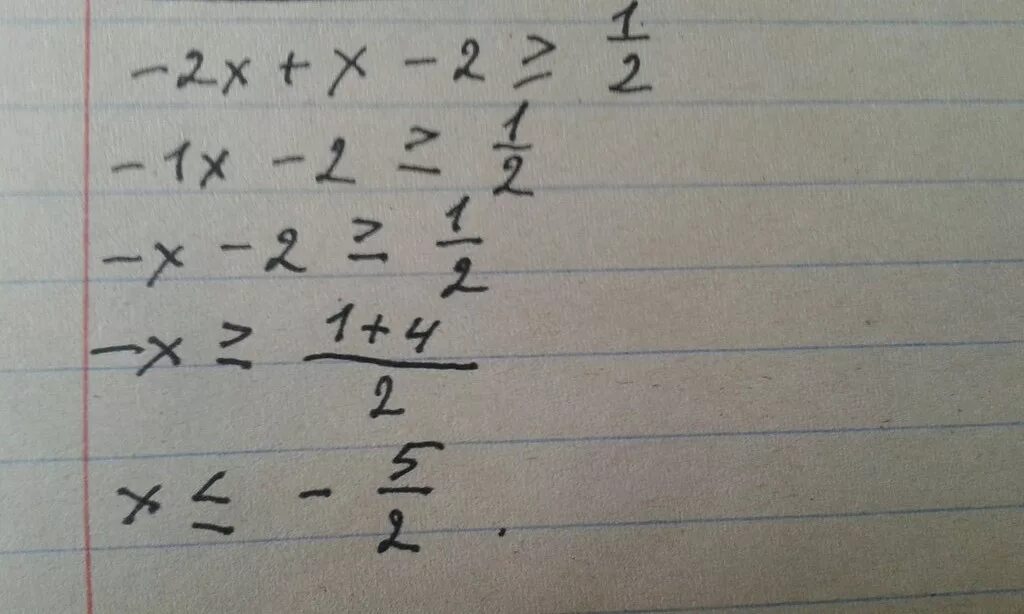 -2x + x - 2 ≥ 1/2
-1x - 2 ≥ 1/2
-x - 2 ≥ 1/2
-x ≥ (1+4)/2
x ≤ - 5/2 .